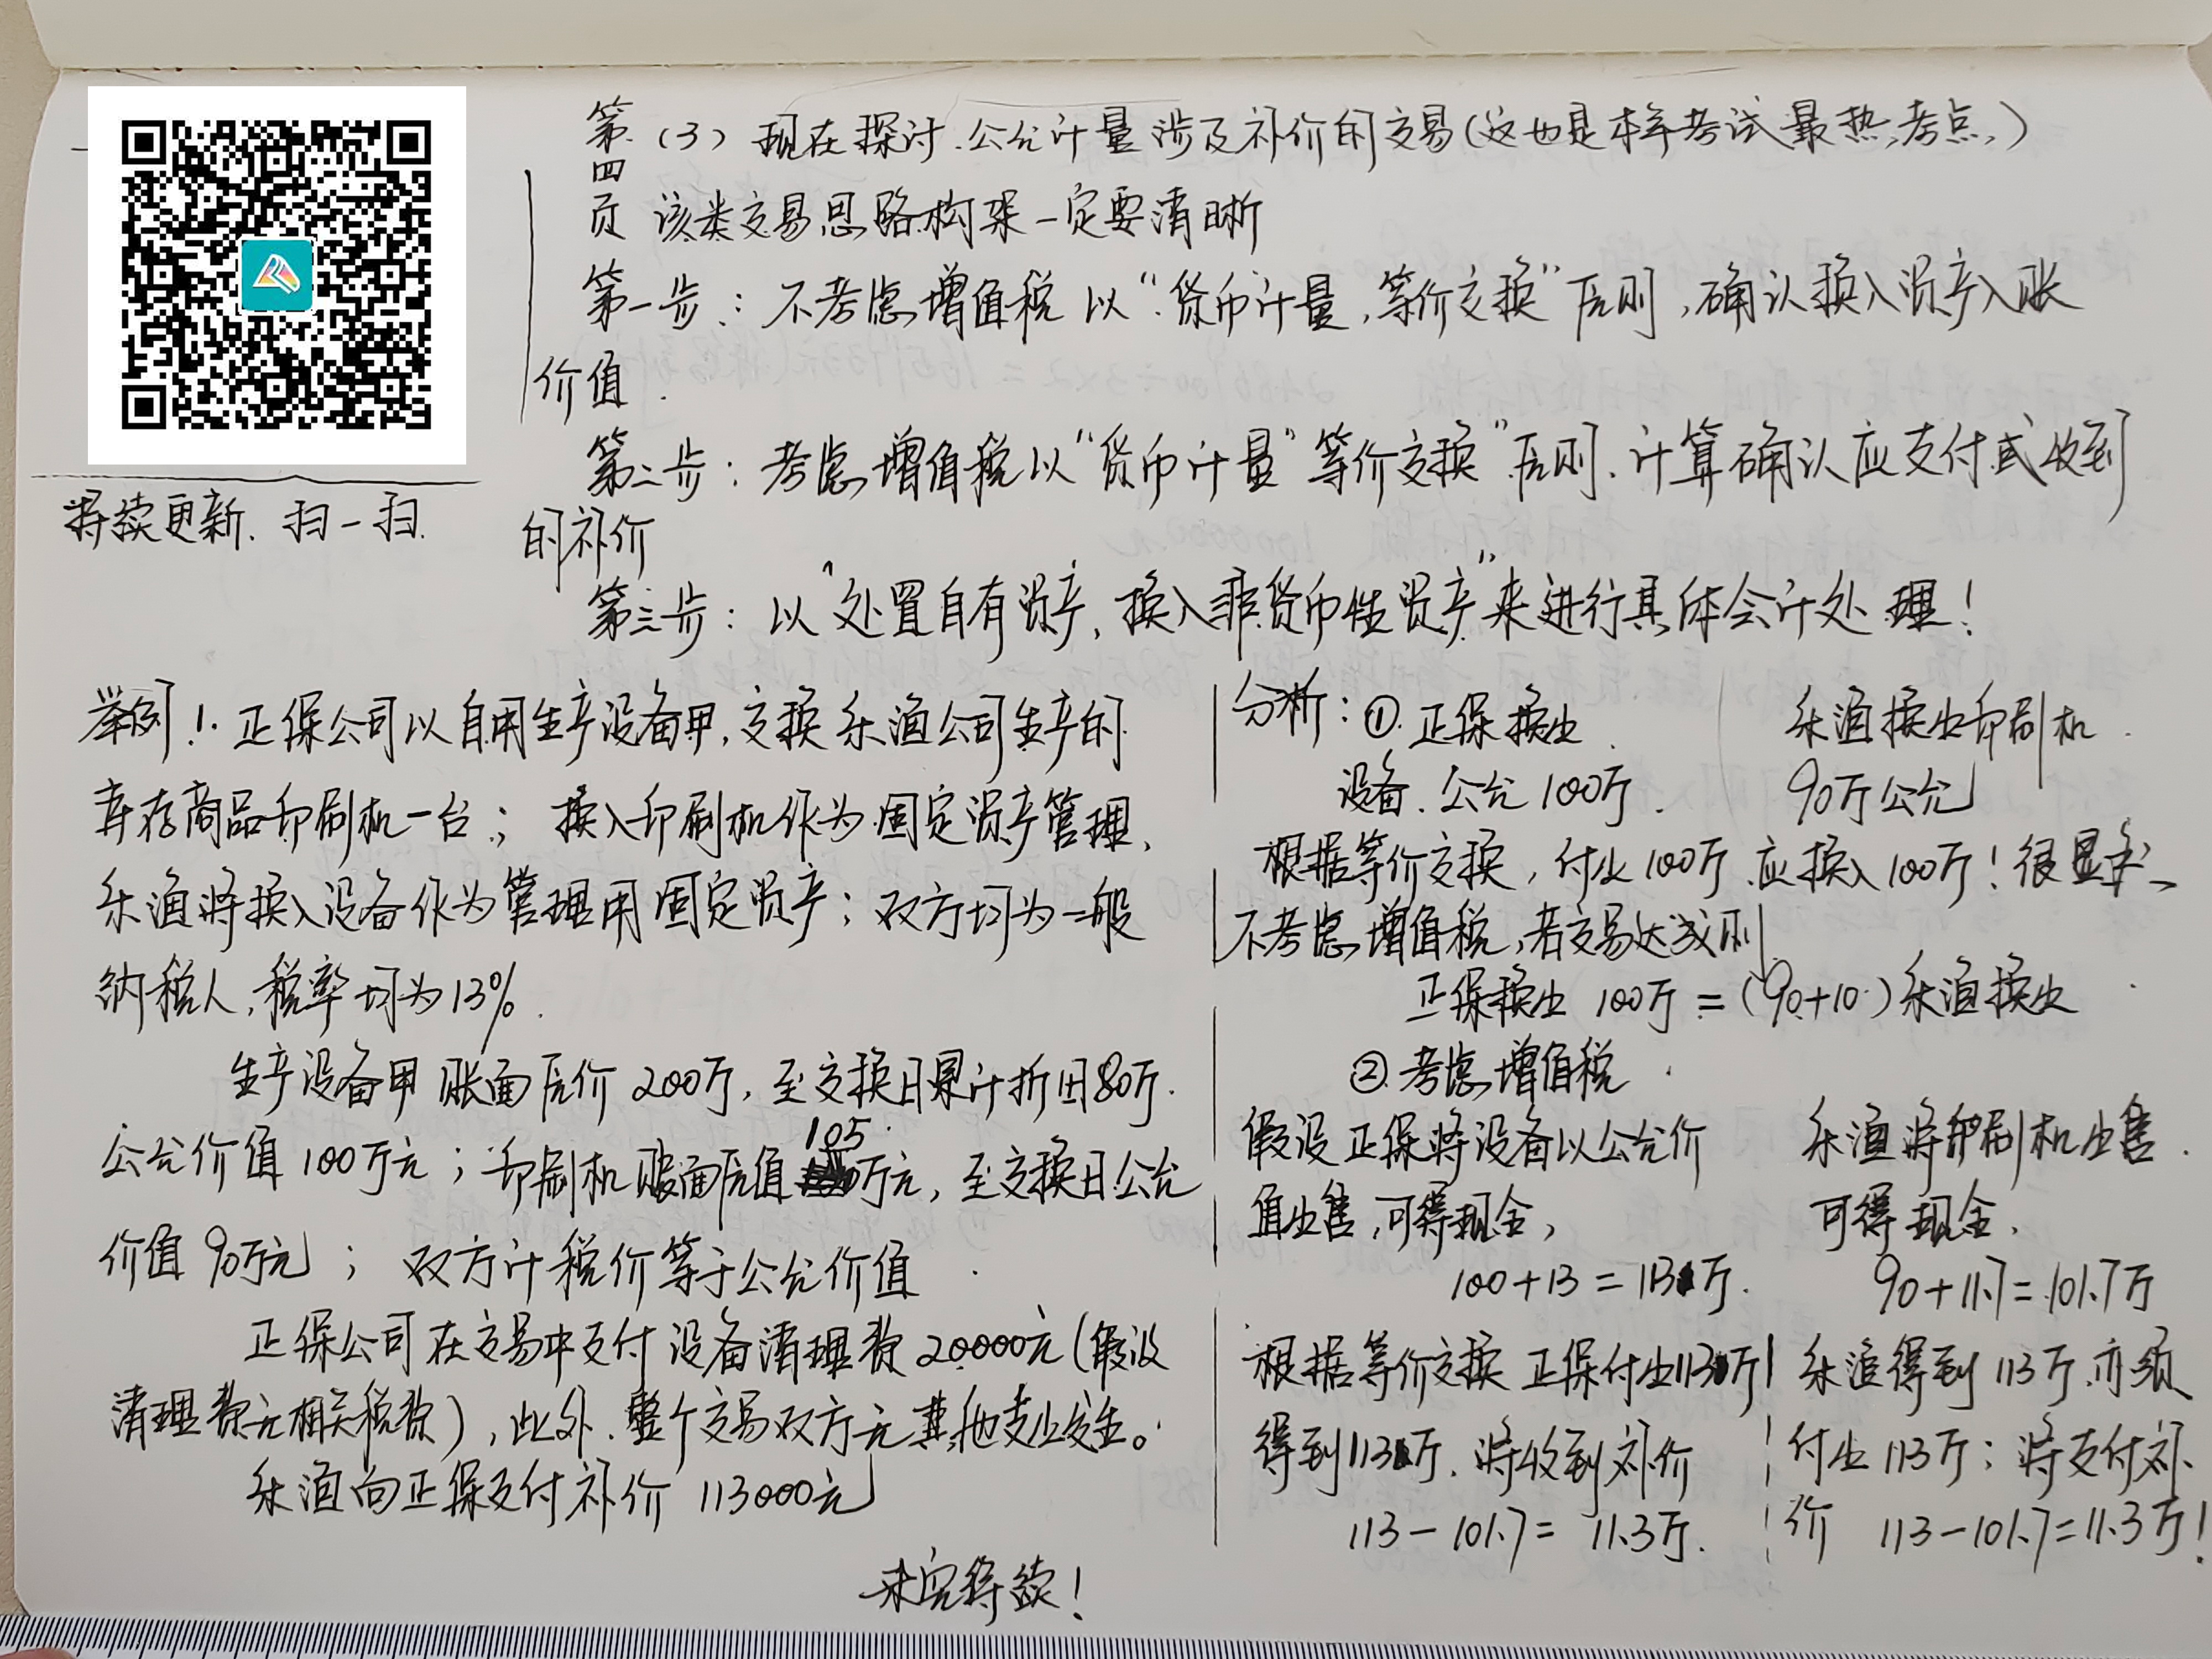 第四页
(3) 现在探讨.公允计量涉及补价的交易(这也是本年考试最热考点,)
该类交易思路构架一定要清晰
第一步:不考虑增值税 以"货币计量,等价交换"原则,确认换入资产入账
价值.
第二步:考虑增值税以"货币计量"等价交换"原则.计算确认应支付或收到
的补价
第三步:以"处置自有资产,换入非货币性资产"来进行具体会计处理!
持续更新.扫一扫.
举例!.正保公司以自用生产设备甲,交换乐渔公司生产的
库存商品印刷机一台;换入印刷机作为固定资产管理,
乐渔将换入设备作为管理用固定资产;双方均为一般
纳税人,税率均为13%.
生产设备甲 账面原价 200万,至交换日累计折旧80万.
公允价值100万元;印刷机账面原值105万元,至交换日公允
价值90万元;双方计税价等于公允价值.
正保公司在交易中支付设备清理费20000元(假设
清理费无相关税费),此外.整个交易双方无其他支出发生。
乐渔向正保支付补价 113000元
未完待续!
分析:①.正保换出
设备.公允100万.
乐渔换出印刷机.
90万公允
根据等价交换,付出100万.应换入100万!很显然
不考虑增值税,若交易达成则
正保换出 100万=(90+10)乐渔换出
②.考虑增值税.
假设正保将设备以公允价
值出售,可得现金,
100+13=113万.
乐渔将印刷机出售.
可得现金,
90+11.7=101.7万
根据等价交换 正保付出113万
得到113万.将收到补价
113-101.7=11.3万.
乐渔得到113万.亦须
付出113万;将支付补
价 113-101.7=11.3万!